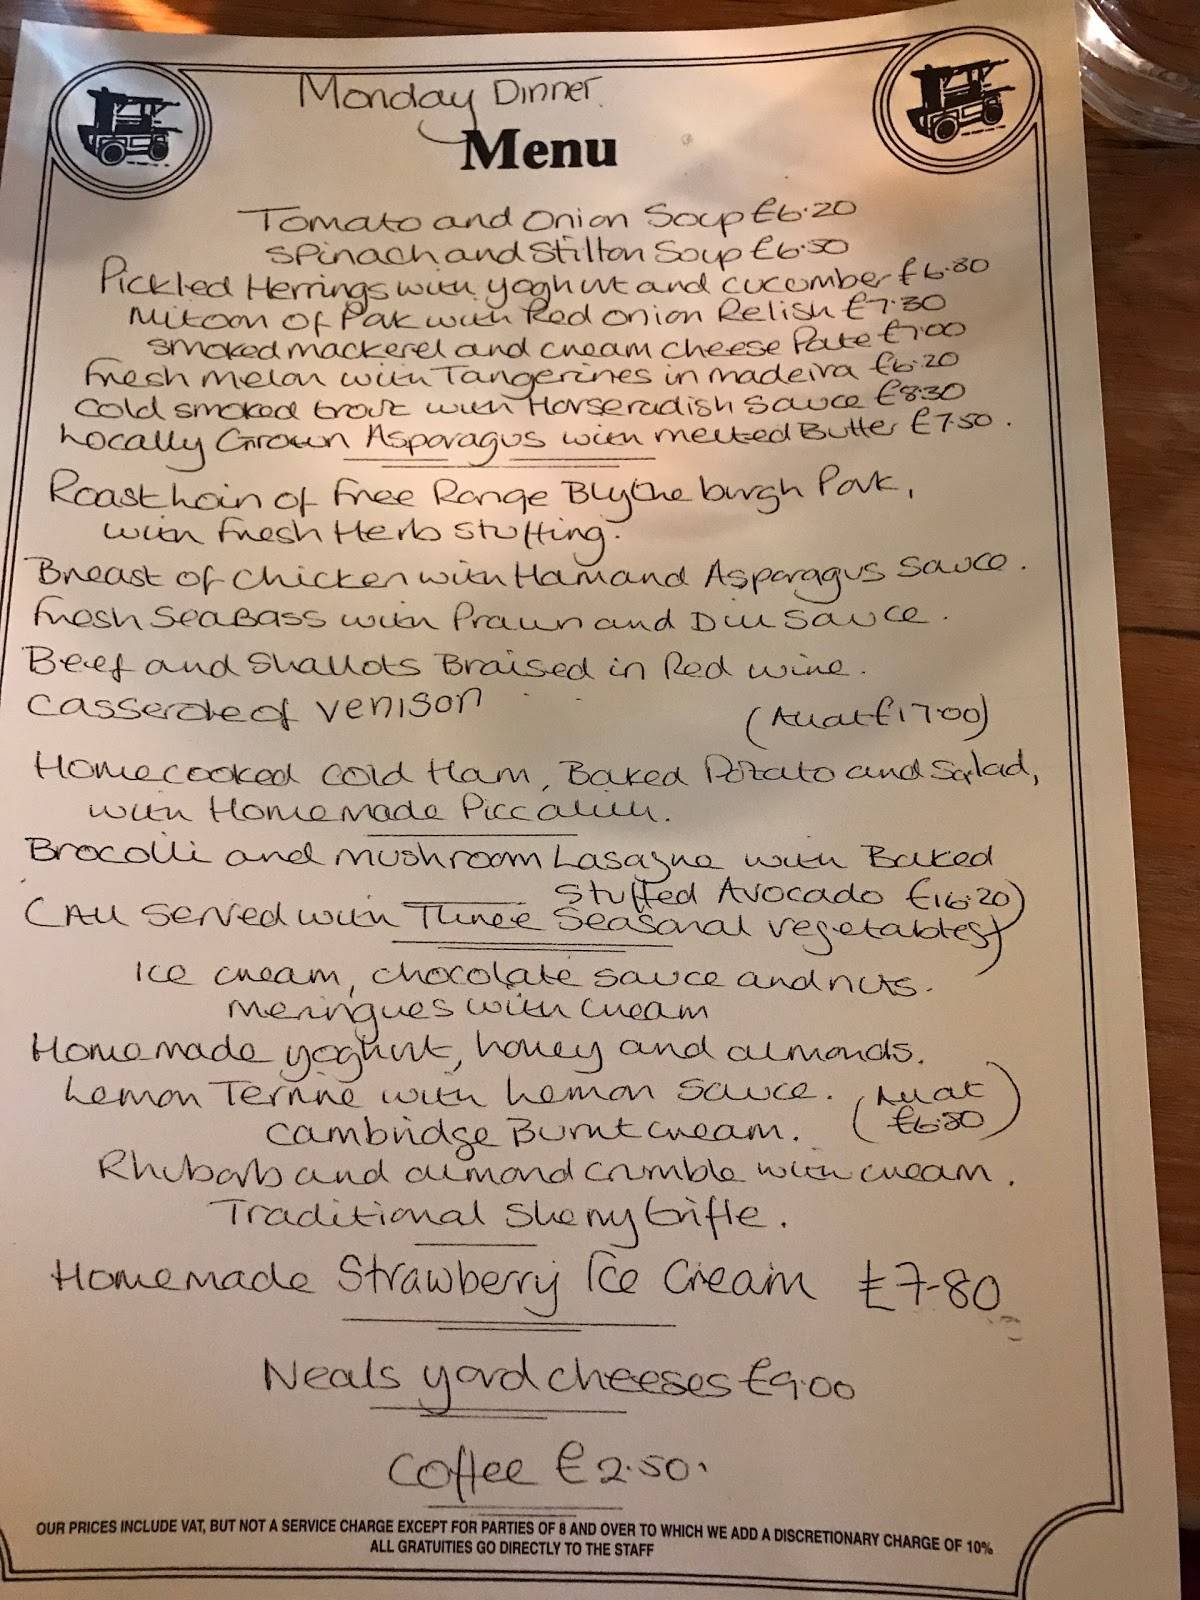 Monday Dinner
Menu
Tomato and Onion Soup £6.20
Spinach and Stilton Soup £6.50
Pickled Herrings with yoghurt and cucumber £6.80
of Pork with Red onion Relish £7.30
Smoked mackerel and cream cheese Pate £7.00
Fresh Melon with Tangerines in madeira £6.20
Cold smoked trout with Horseradish Sauce £8.30
Locally Grown Asparagus with melted Butter £7.50.
Roast Loin of Free Range Blytheburgh Pork,
with Fresh Herb Stuffing.
Breast of Chicken with Ham and Asparagus Sauce.
Fresh SeaBass with Prawn and Dill Sauce.
Beef and Shallots Braised in Red wine.
Casserole of Venison
(All at £17.00)
Homecooked Cold Ham, Baked Potato and Salad,
with Homemade Piccalilli.
Brocolli and mushroom Lasagne with Baked
Stuffed Avocado £16.20
(All Served with Three Seasonal vegetables)
Ice cream, chocolate sauce and nuts.
Meringues with cream
Homemade yoghurt, honey and almonds.
Lemon Terrine with Lemon Sauce. (All at
£6.80)
Cambridge Burnt cream.
Rhubarb and almond crumble with cream.
Traditional Sherry trifle.
Homemade Strawberry Ice Cream £7.80
Neals yard cheeses £9.00
Coffee £2.50.
OUR PRICES INCLUDE VAT, BUT NOT A SERVICE CHARGE EXCEPT FOR PARTIES OF 8 AND OVER TO WHICH WE ADD A DISCRETIONARY CHARGE OF 10%
ALL GRATUITIES GO DIRECTLY TO THE STAFF